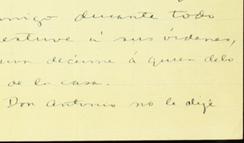 amigo durante todo
estuve á sus órdenes,
decirme á quien debo
de la casa.
Don Antonio no le dije